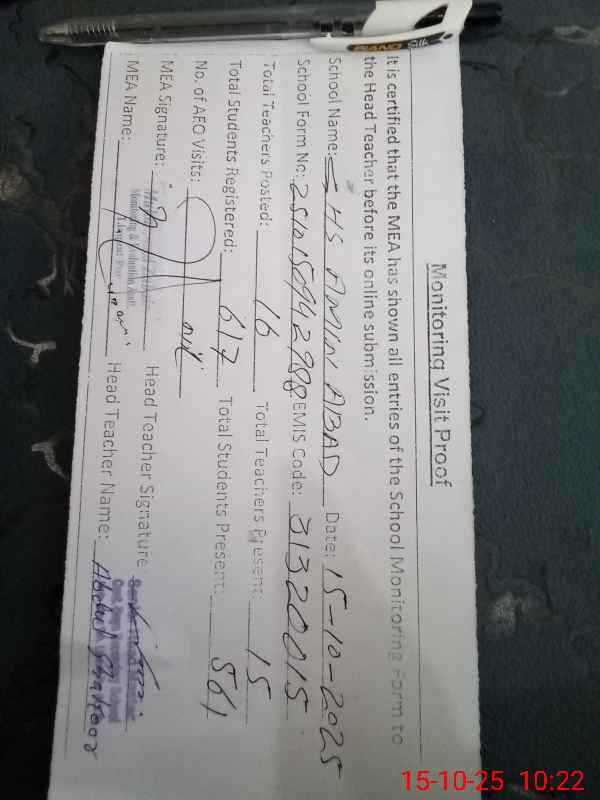 PIANO Silk
Monitoring Visit Proof
It is certified that the MEA has shown all entries of the School Monitoring Form to
the Head Teacher before its online submission.
School Name: GHS AMIN ABAD Date: 15-10-2025
School Form No: EMIS Code: 31320015
Total Teachers Posted: 16 Total Teachers Present: 15
Total Students Registered: 617 Total Students Present: 561
No. of AEO Visits: nil
MEA Signature: Head Teacher Signature
MEA Name: Head Teacher Name: Abdul Ghafoor
Monitoring & Evaluation
15-10-25 10:22